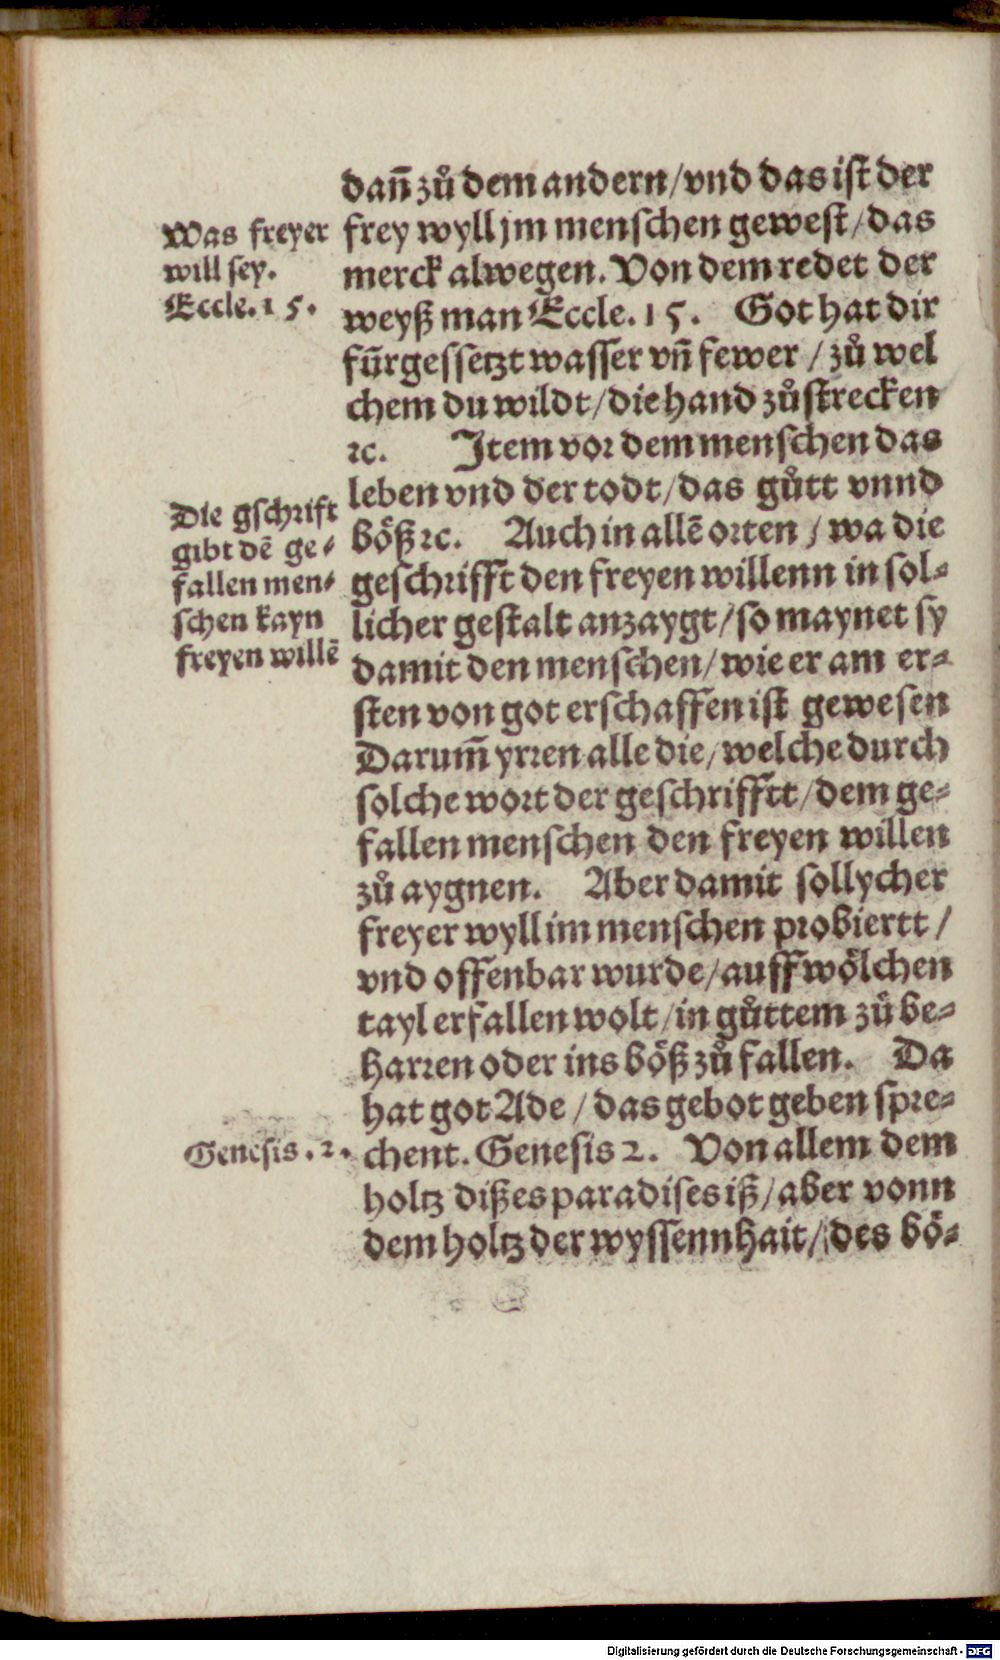 dañ zů dem andern/vnd das ist der
frey wyll jm menschen gewest/das
merck alwegen. Von dem redet der
weyß man Eccle. 15. Got hat dir
fürgessetzt wasser vñ fewer / zů wel
chem du wildt/die hand zůstrecken
ꝛc. Item vor dem menschen das
leben vnd der todt/das gůtt vnnd
böß ꝛc. Auch in allē orten / wa die
geschrifft den freyen willenn in sol-
licher gestalt anzaygt/so maynet sy
damit den menschen/wie er am er-
sten von got erschaffen ist gewesen
Darum̃ yrren alle die/welche durch
solche wort der geschrifftt/dem ge-
fallen menschen den freyen willen
zů aygnen. Aber damit sollycher
freyer wyll im menschen probiertt /
vnd offenbar wurde/auff wölchen
tayl er fallen wolt/in gůttem zů be-
harren oder ins böß zů fallen. Da
hat got Ade / das gebot geben spre-
chent. Genesis 2. Von allem dem
holtz dißes paradises iß/aber vonn
dem holtz der wyssennhait/des bö-
Was freyer
will sey.
Eccle. 15.
Die gschrift
gibt dē ge-
fallen men-
schen kayn
freyen willē
Genesis. 2.
Digitalisierung gefördert durch die Deutsche Forschungsgemeinschaft - DFG